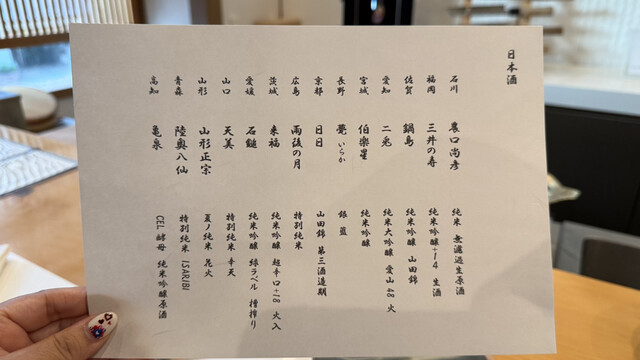 日本酒
石川 農口尚彦 純米 無濾過生原酒
福岡 三井の寿 純米吟醸+14 生酒
佐賀 鍋島 純米吟醸 山田錦
愛知 二兎 純米大吟醸 愛山48 火
宮城 伯楽星 純米吟醸
長野 甍 いらか 銀藍
京都 日日 山田錦 第三酒造期
広島 雨後の月 特別純米
茨城 来福 純米吟醸 超辛口+18 火入
愛媛 石鎚 純米吟醸 緑ラベル 槽搾り
山口 天美 特別純米 辛天
山形 山形正宗 夏ノ純米 花火
青森 陸奥八仙 特別純米 ISARIBI
高知 亀泉 CEL酵母 純米吟醸原酒